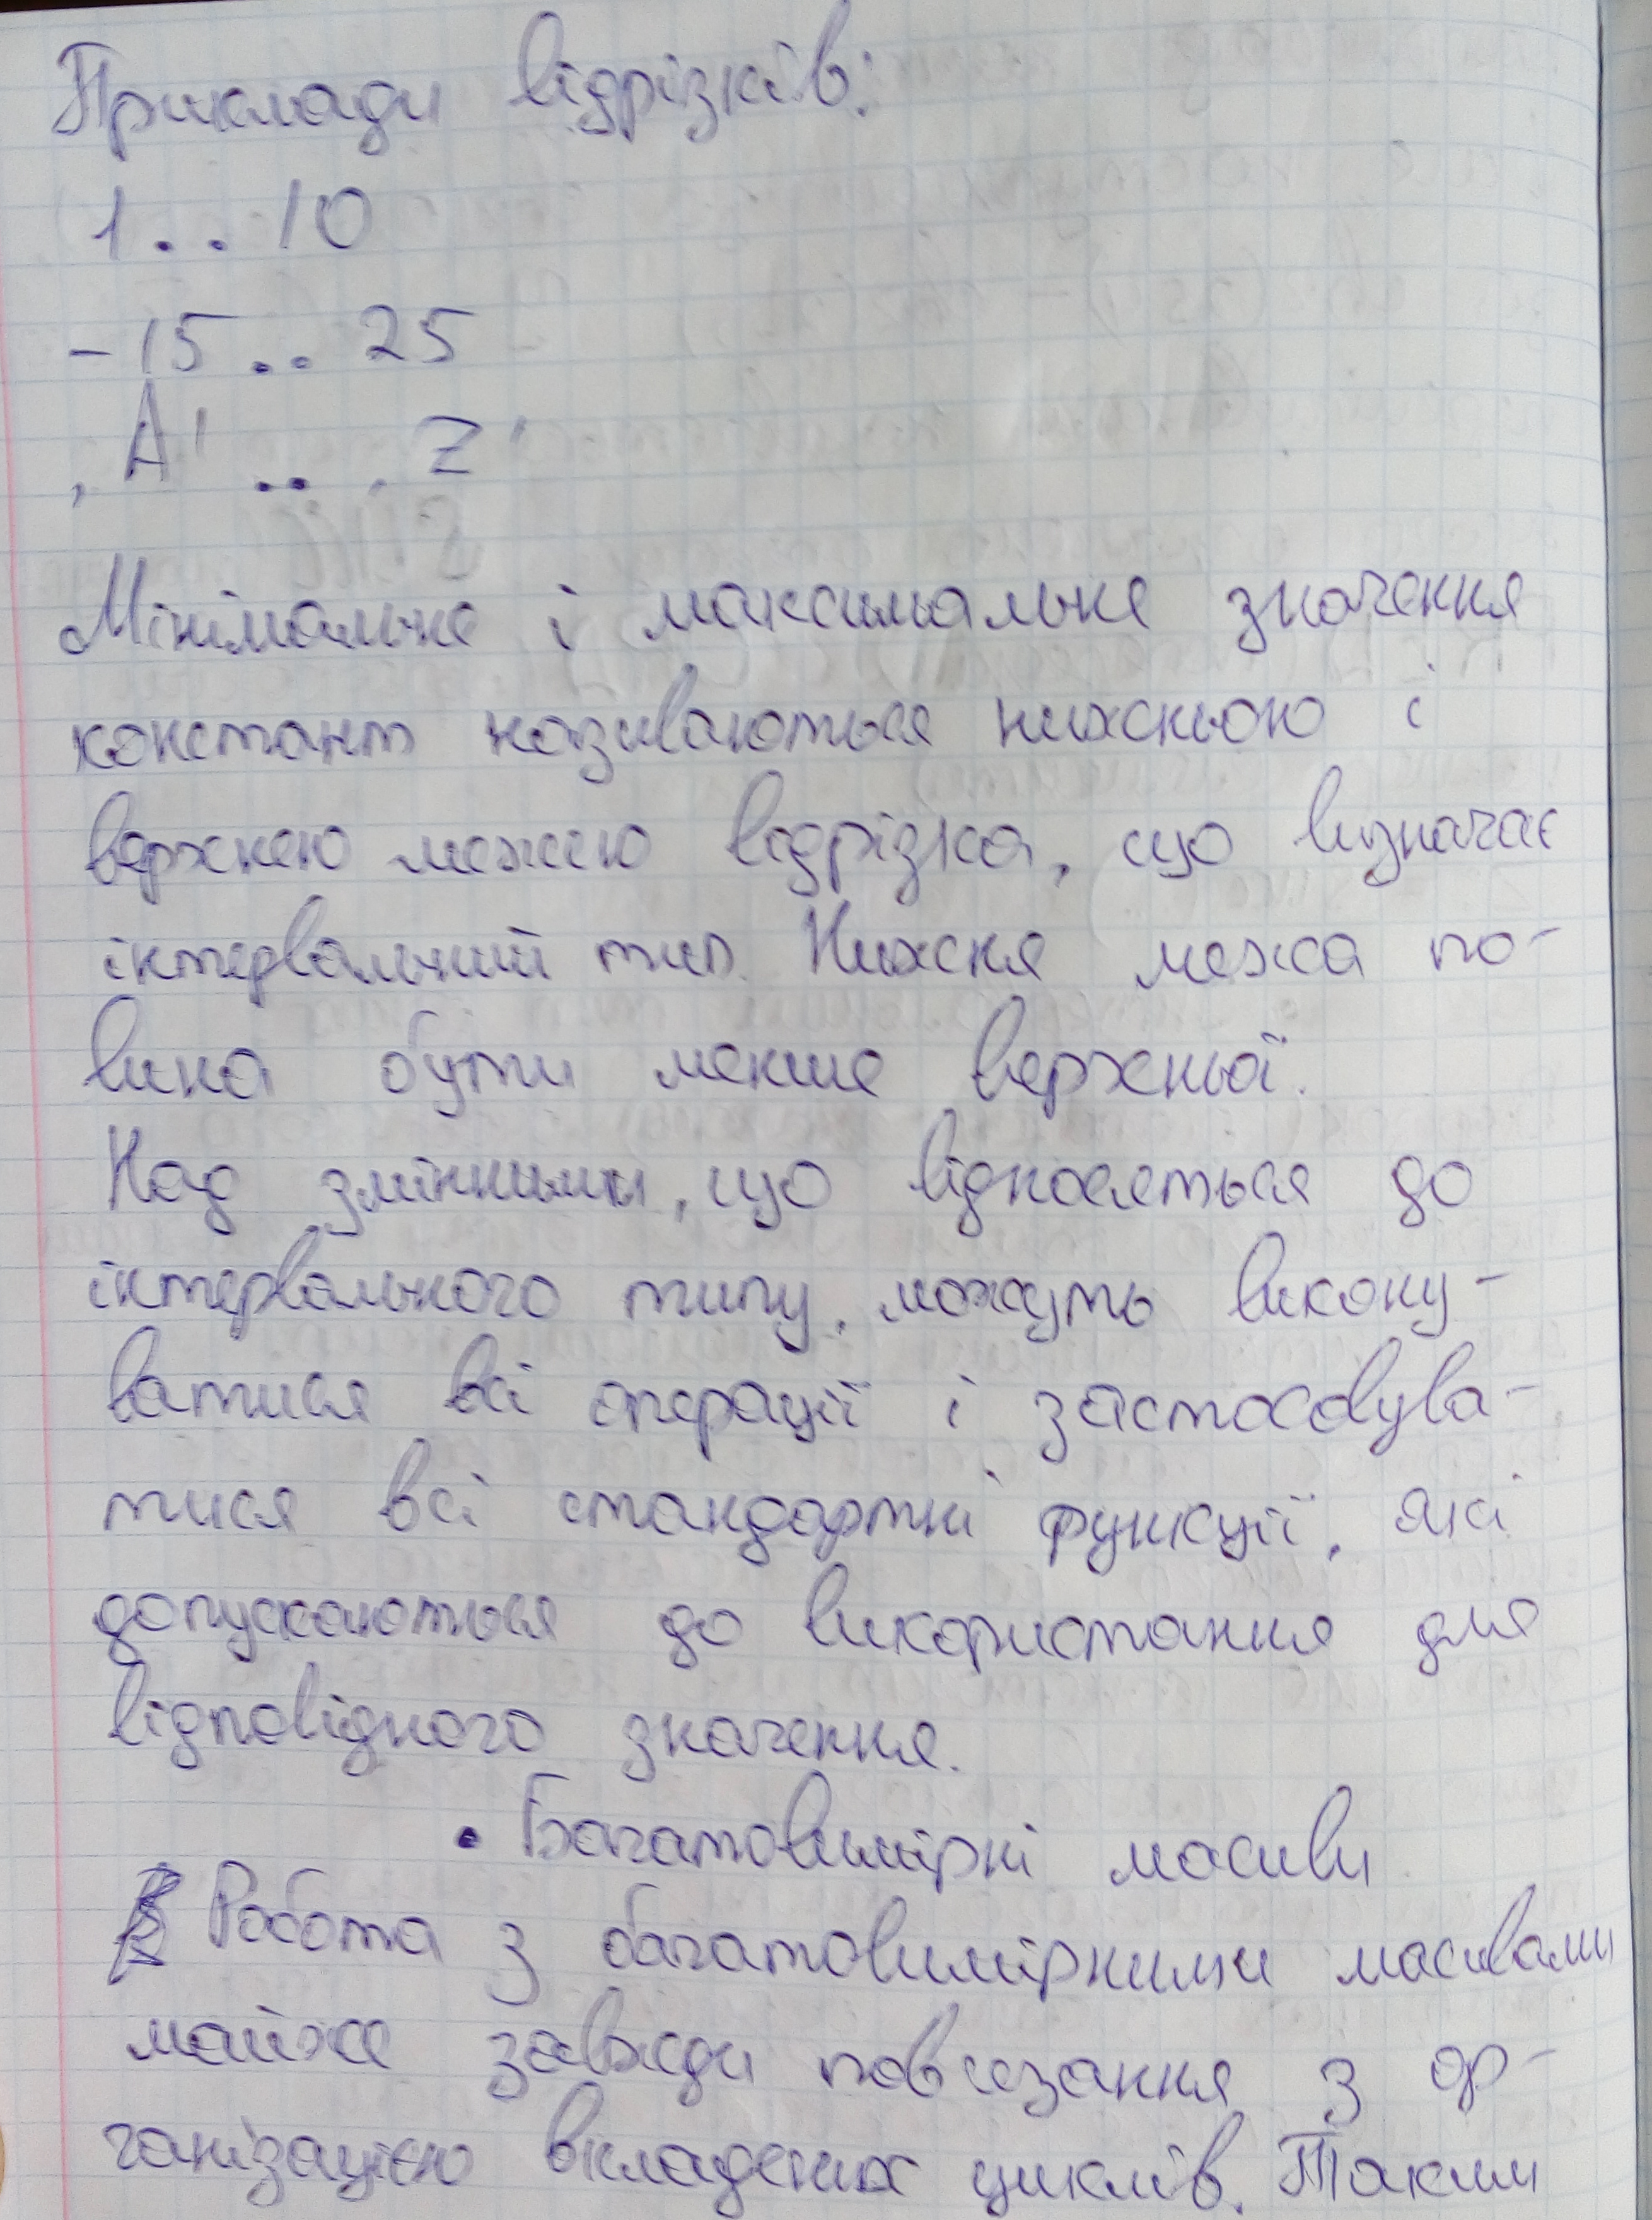 Приклади відрізків:
1..10
-15..25
‚A'..‚Z'
Мінімальне і максимальне значення
констант називаються нижньою і
верхнею межею відрізка, що визначає
інтервальний тип. Нижня межа по-
вина бути менше верхньої.
Над змінними, що відносяться до
інтервального типу, можуть викону-
ватися всі операції і застосовува-
тися всі стандартні функції, які
допускаються до використання для
відповідного значення.
• Багатовимірні масиви
Робота з багатовимірними масивами
майже завжди повязання з ор-
ганізацією вкладених циклів. Таким